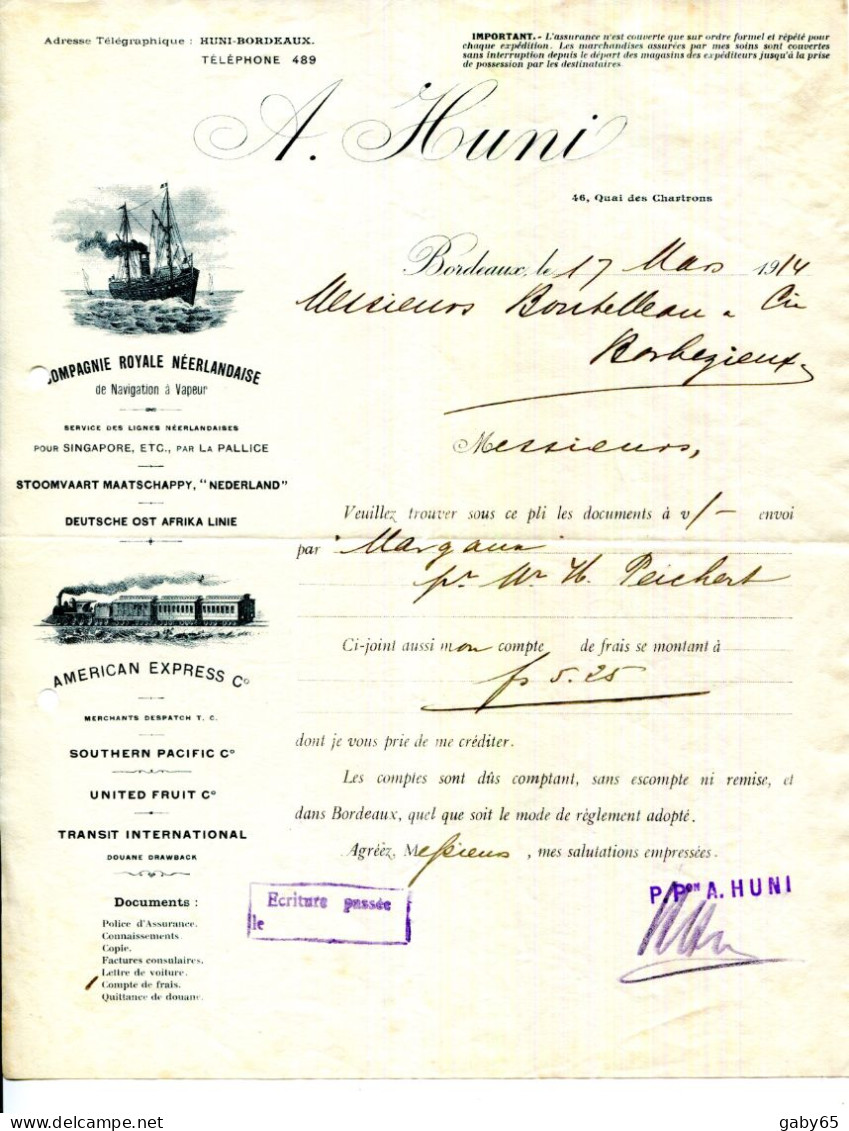 Adresse Télégraphique : HUNI-BORDEAUX.
TÉLÉPHONE 489
IMPORTANT. - L'assurance n'est couverte que sur ordre formel et répété pour
chaque expédition. Les marchandises assurées par mes soins sont couvertes
sans interruption depuis le départ des magasins des expéditeurs jusqu'à la prise
de possession par les destinataires
A. Huni
46, Quai des Chartrons
Bordeaux, le 17 Mars 1914
Messieurs Boutelleau & Cie
Barbezieux
COMPAGNIE ROYALE NÉERLANDAISE
de Navigation à Vapeur
SERVICE DES LIGNES NÉERLANDAISES
POUR SINGAPORE, ETC., PAR LA PALLICE
STOOMVAART MAATSCHAPPY, "NEDERLAND"
DEUTSCHE OST AFRIKA LINIE
AMERICAN EXPRESS Co
MERCHANTS DESPATCH T. C.
SOUTHERN PACIFIC Co
UNITED FRUIT Co
TRANSIT INTERNATIONAL
DOUANE DRAWBACK
Documents :
Police d'Assurance.
Connaissements.
Copie.
Factures consulaires.
Lettre de voiture.
Compte de frais.
Quittance de douane.
Messieurs,
Veuillez trouver sous ce pli les documents à v/- envoi
par "Margaux"
pr Mr H. Peichert
Ci-joint aussi mon compte de frais se montant à
fs 5.25
dont je vous prie de me créditer.
Les comptes sont dûs comptant, sans escompte ni remise, et
dans Bordeaux, quel que soit le mode de règlement adopté.
Agréez, Messieurs, mes salutations empressées.
Ecriture passée
le
P. Pon A. HUNI
gaby65